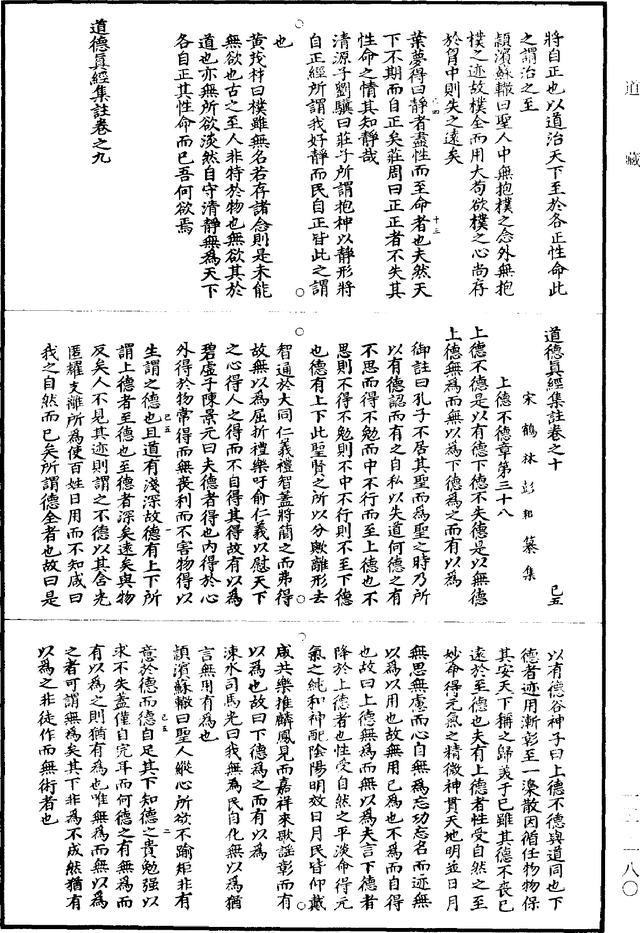 道藏
將自正也以道治天下至於各正性命此
之謂治之至
頴濱蘇轍曰聖人中無抱樸之念外無抱
樸之迹故樸全而用大苟欲樸之心尚存
於胷中則失之遠矣
葉夢得曰靜者盡性而至命者也夫然天
下不期而自正矣莊周曰正正者不失其
性命之情其知靜哉
清源子劉驥曰莊子所謂抱神以靜形將
自正經所謂我好靜而民自正皆此之謂
也
黄茂材曰樸雖無名若存諸念則是未能
無欲也古之至人非特於物也無欲其於
道也亦無所欲淡然自守清靜無爲天下
各自正其性命而已吾何欲焉
道德真經集註卷之九
道德真經集註卷之十
己五
宋鶴林彭耜纂集
上德不德章第三十八
上德不德是以有德下德不失德是以無德
上德無爲而無以爲下德爲之而有以爲
御註曰孔子不居其聖而爲聖之時乃所
以有德認而有之自私以失道何德之有
不思而得不勉而中不行而至上德也不
思則不得不勉則不中不行則不至下德
也德有上下此聖賢之所以分歟離形去
智通於大同仁義禮智蓋將簡之而弗得
故無以爲屈折禮樂吁俞仁義以慰天下
之心得人之得而不自得其得故有以爲
碧虛子陳景元曰夫德者得也内得於心
外得於物常得而無喪利而不害物得以
生謂之德也且道有淺深故德有上下所
謂上德者至德也至德者深矣遠矣與物
反矣人不見其迹則謂之不德以其含光
匿耀支離所爲使百姓日用而不知咸曰
我之自然而已矣所謂德全者也故曰是
以有德谷神子曰上德不德與道同也下
德者迹用漸彰至一澆散因循任物物保
其安天下稱之歸義于已雖其德不喪已
遠於至德也夫有上德者性受自然之至
妙命得元氣之精微神貫天地明並日月
無思無慮而心自無爲忘功忘名而迹無
以爲以用也故無用已爲也不爲而自得
也故曰上德無爲而無以爲夫言下德者
降於上德者也性受自然之平淡命得元
氣之純和神配陰陽明效日月民皆仰戴
咸共樂推麟鳳見而嘉祥來歌謡彰而有
以爲也故曰下德爲之而有以爲
涑水司馬光曰我無爲民自化無以爲猶
言無用有爲也
頴濱蘇轍曰聖人縱心所欲不踰矩非有
意於德而德自足其下知德之貴勉强以
求不失蓋僅自完耳而何德之有無爲而
有以爲之則猶有爲也唯無爲而無以爲
之者可謂無爲矣其下非爲不成然猶有
以爲之非徒作而無術者也
一三-一八〇